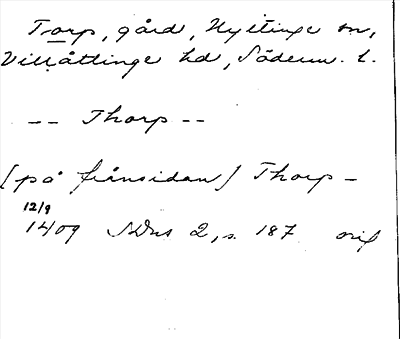 Torp, gård, Hyltinge sn,
Villåttinge hd, Söderm. l.
-- Thorp --
[på frånsidan] Thorp -
12/9
1409 SDns 2, s. 187 orig